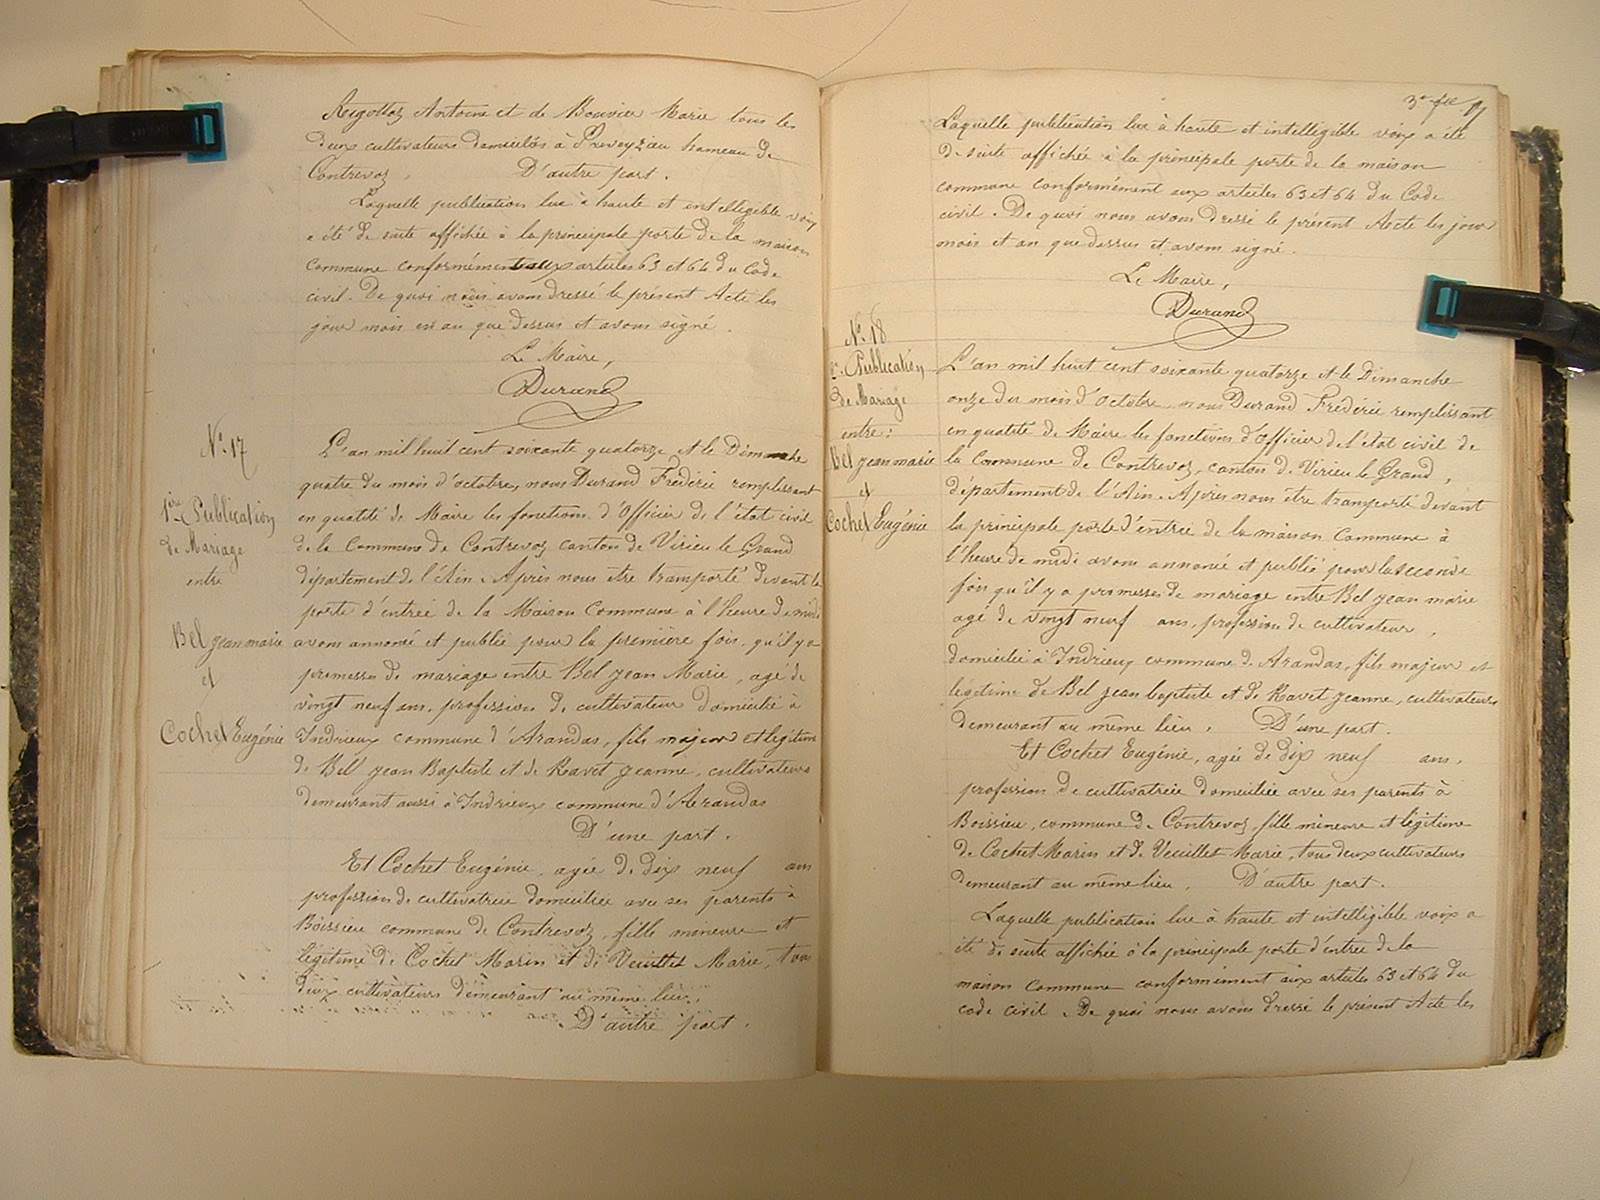 Rigolloz Antoine et de Bouvier Marie tous les
deux cultivateurs domiciliés à Preveyzieu hameau de
Contrevoz. D'autre part.
Laquelle publication lue à haute et intelligible voix
a été de suite affichée à la principale porte de la maison
commune conformément aux articles 63 et 64 du Code
civil. De quoi nous avons dressé le présent Acte les
jour mois et an que dessus et avons signé.
Le Maire,
Durand
N°. 17
1ère Publication
de Mariage
entre
Bel Jean marie
et
Cochet Eugénie
L'an mil huit cent soixante quatorze et le Dimanche
quatre du mois d'octobre, nous Durand Frédéric remplissant
en qualité de Maire les fonctions d'Officier de l'état civil
de la Commune de Contrevoz canton de Virieu le Grand
département de l'Ain. Après nous être transporté devant la
porte d'entrée de la Maison Commune à l'heure de midi
avons annoncé et publié pour la première fois, qu'il y a
promesse de mariage entre Bel Jean Marie, agé de
vingt neuf ans, profession de cultivateur domicilié à
Indrieux commune d'Arandas, fils majeur et légitime
de Bel Jean Baptiste et de Ravet Jeanne, cultivateurs
demeurant aussi à Indrieux commune d'Arandas
D'une part.
Et Cochet Eugénie, agée de dix neuf ans
profession de cultivatrice domiciliée avec ses parents à
Boissieu commune de Contrevoz, fille mineure et
légitime de Cochet Marin et de Veuillet Marie, tous
deux cultivateurs demeurant au même lieu,
D'autre part.
3e fle
Laquelle publication lue à haute et intelligible voix a été
de suite affichée à la principale porte de la maison
commune conformément aux articles 63 et 64 du Code
civil. De quoi nous avons dressé le présent Acte les jour
mois et an que dessus et avons signé.
Le Maire,
Durand
N°. 18
2e. Publication
de Mariage
entre:
Bel Jean marie
et
Cochet Eugénie
L'an mil huit cent soixante quatorze et le Dimanche
onze du mois d'octobre, nous Durand Frédéric remplissant
en qualité de Maire les fonctions d'Officier de l'état civil de
la Commune de Contrevoz, canton de Virieu le Grand,
département de l'Ain. Après nous être transporté devant
la principale porte d'entrée de la maison Commune à
l'heure de midi avons annoncé et publié pour la seconde
fois qu'il y a promesse de mariage entre Bel Jean marie
agé de vingt neuf ans, profession de cultivateur,
domicilié à Indrieux commune d'Arandas, fils majeur et
légitime de Bel Jean baptiste et de Ravet Jeanne, cultivateurs
demeurant au même lieu, D'une part.
Et Cochet Eugénie, agée de dix neuf ans,
profession de cultivatrice domiciliée avec ses parents à
Boissieu, commune de Contrevoz, fille mineure et légitime
de Cochet Marin et de Veuillet Marie, tous deux cultivateurs
demeurant au même lieu, D'autre part.
Laquelle publication lue à haute et intelligible voix a
été de suite affichée à la principale porte d'entrée de la
maison Commune conformément aux articles 63 et 64 du
code civil. De quoi nous avons dressé le présent Acte les